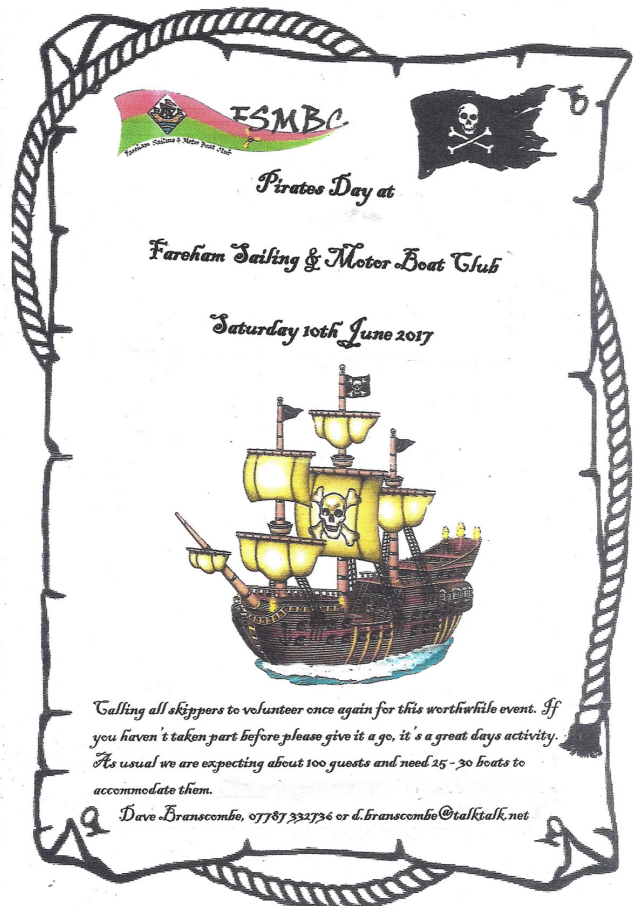 FSMBC
Fareham Sailing & Motor Boat Club
Pirates Day at
Fareham Sailing & Motor Boat Club
Saturday 10th June 2017
Calling all skippers to volunteer once again for this worthwhile event. If
you haven't taken part before please give it a go, it's a great days activity.
As usual we are expecting about 100 guests and need 25 - 30 boats to
accommodate them.
Dave Branscombe, 07787 332736 or d.branscombe@talktalk.net